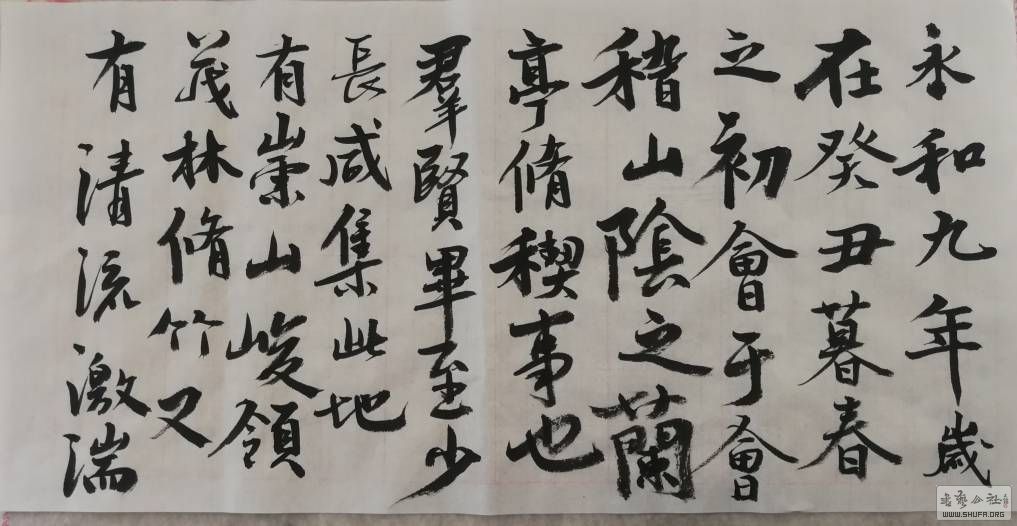 永和九年歲
在癸丑暮春
之初會于會
稽山陰之蘭
亭脩稧事也
羣賢畢至少
長咸集此地
有崇山峻領
茂林脩竹又
有清流激湍
书艺公社
WWW.SHUFA.ORG